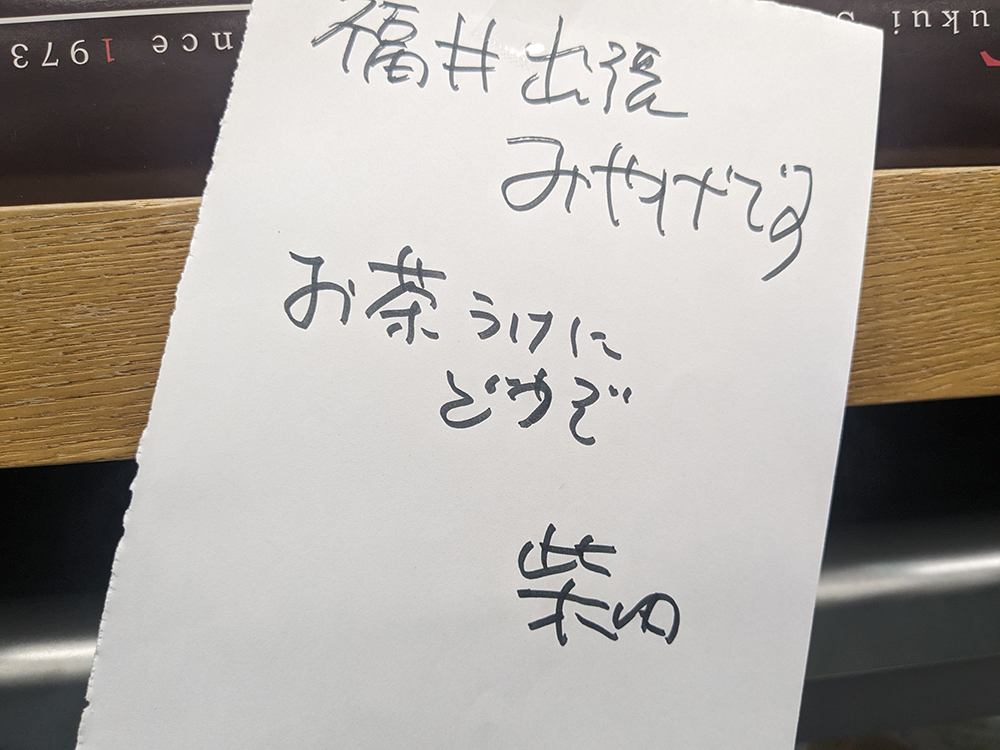 ukui s
nce 1973
福井出張
みやげです
お茶うけに
どうぞ
柴田